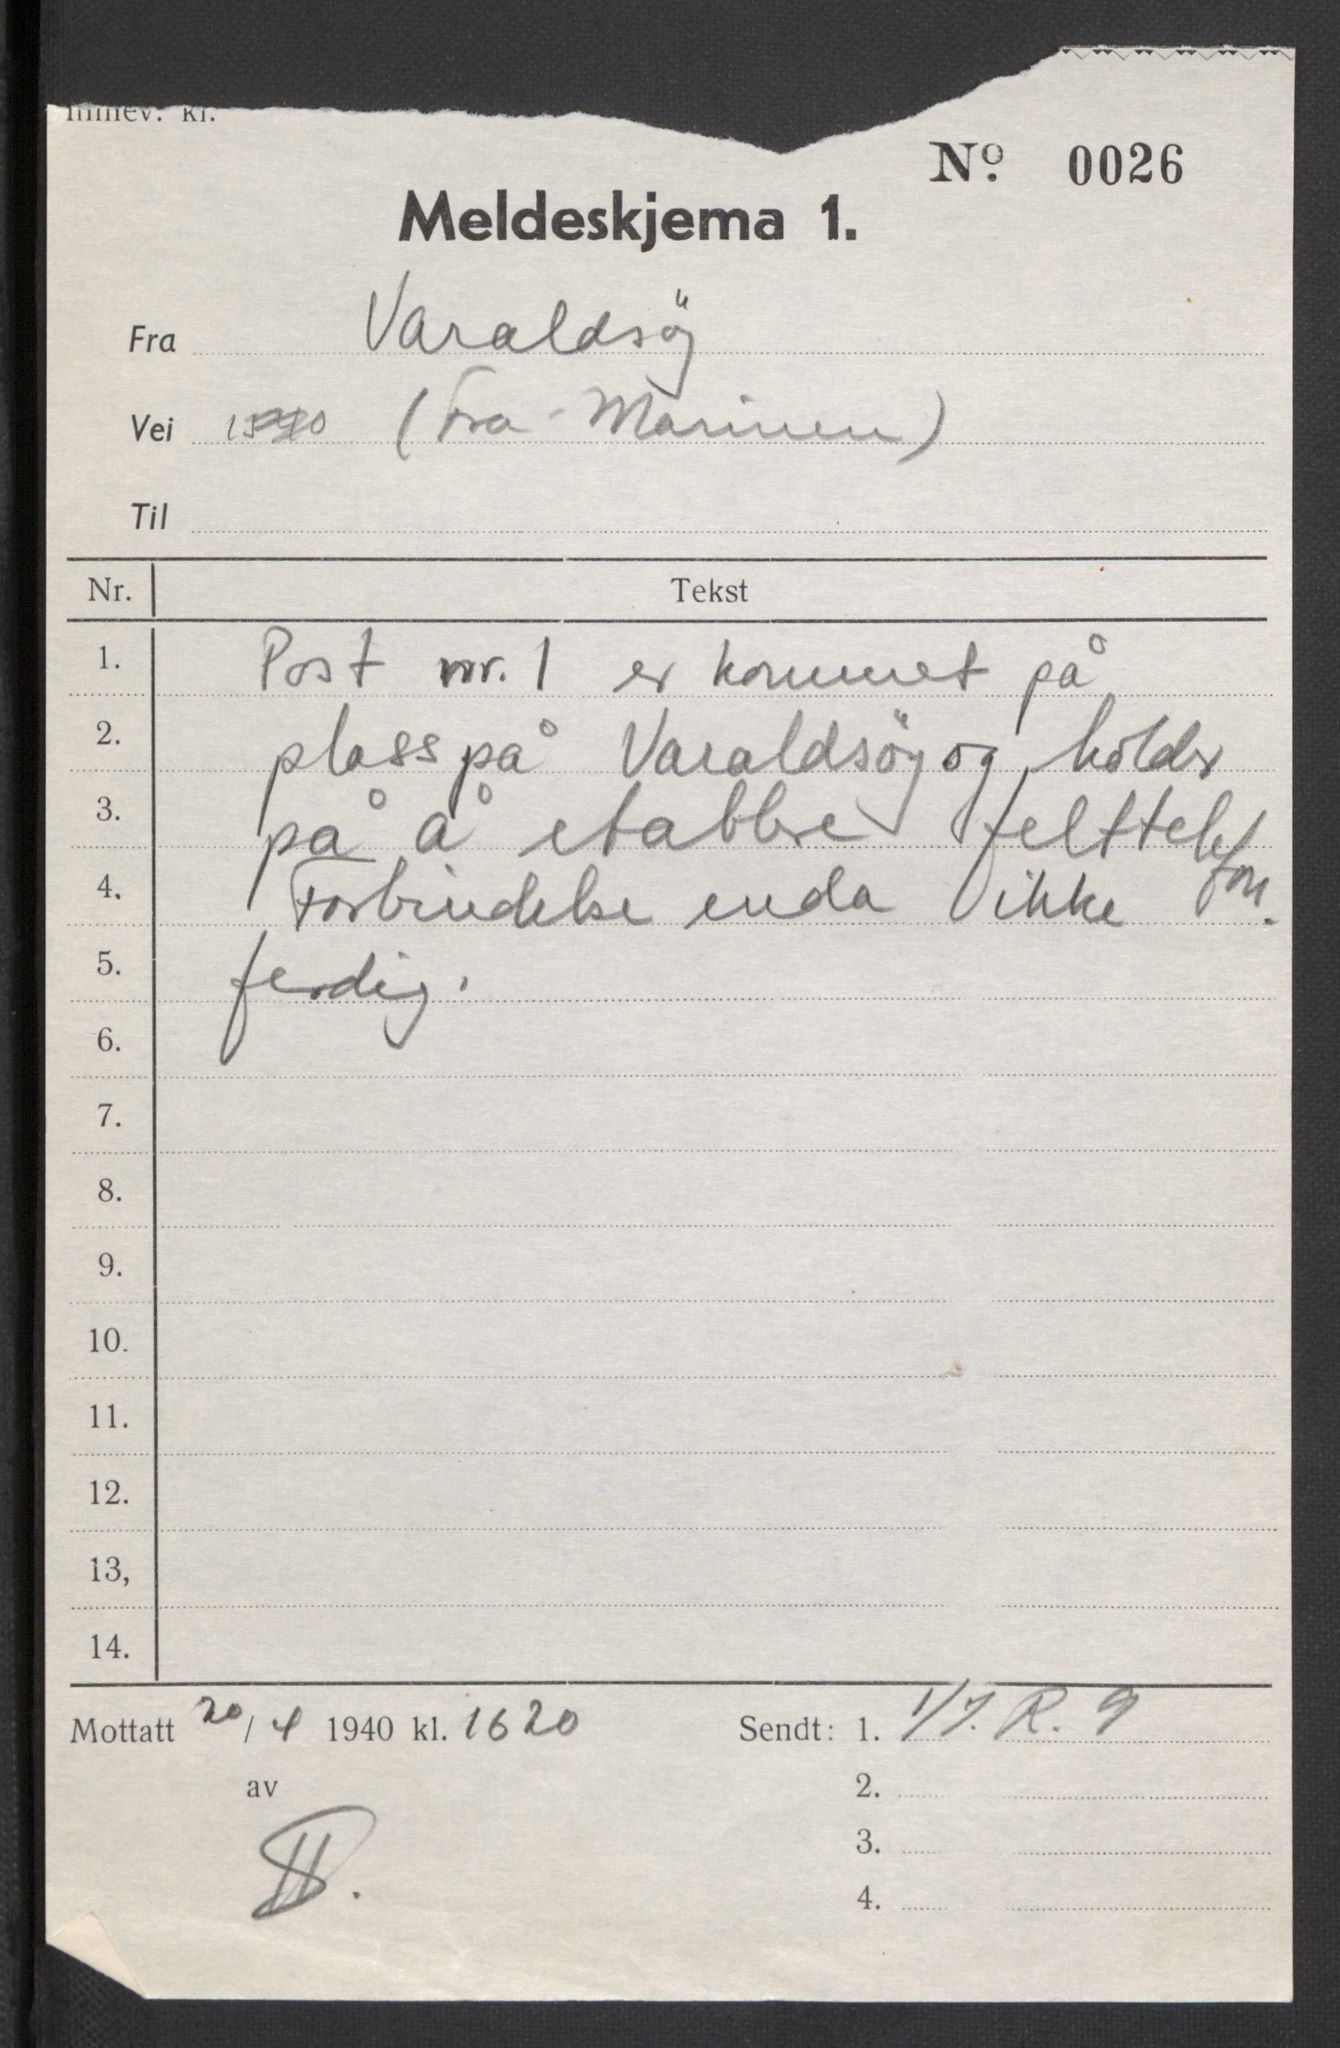 Innlev. kl.
No. 0026
Meldeskjema 1.
Fra Varaldsöy
Vei (Fra Marinen)
Til
Nr. Tekst
1. Post nr. 1 er kommet på
2. plass på Varaldsöy og holder
3. på å etablere felttelefon.
4. Forbindelse enda ikke
5. ferdig.
6.
7.
8.
9.
10.
11.
12.
13,
14.
Mottatt 20/4 1940 kl. 1620 Sendt: 1. 1/J. R. 9
av 2.
3.
4.